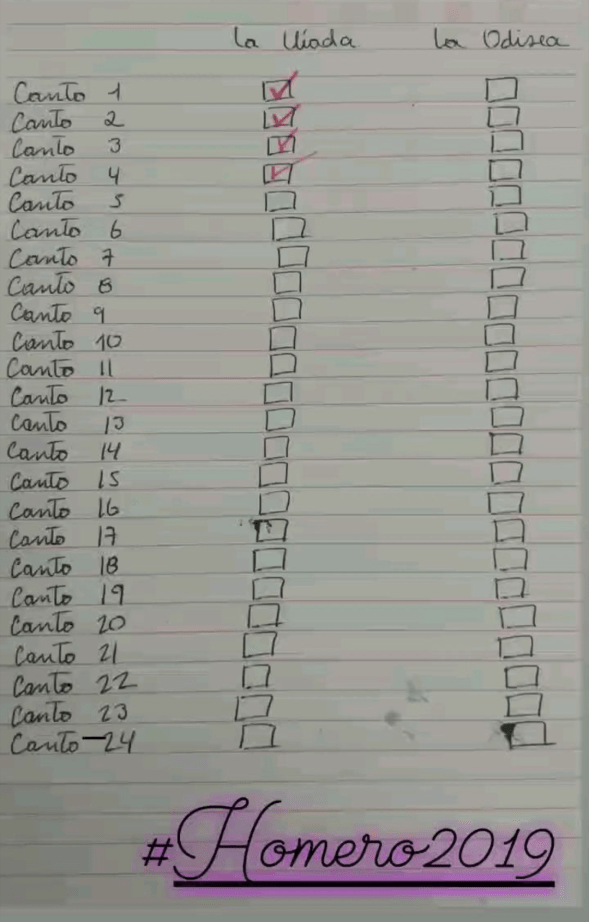 La Ilíada La Odisea
Canto 1
Canto 2
Canto 3
Canto 4
Canto 5
Canto 6
Canto 7
Canto 8
Canto 9
Canto 10
Canto 11
Canto 12
Canto 13
Canto 14
Canto 15
Canto 16
Canto 17
Canto 18
Canto 19
Canto 20
Canto 21
Canto 22
Canto 23
Canto 24
#Homero2019